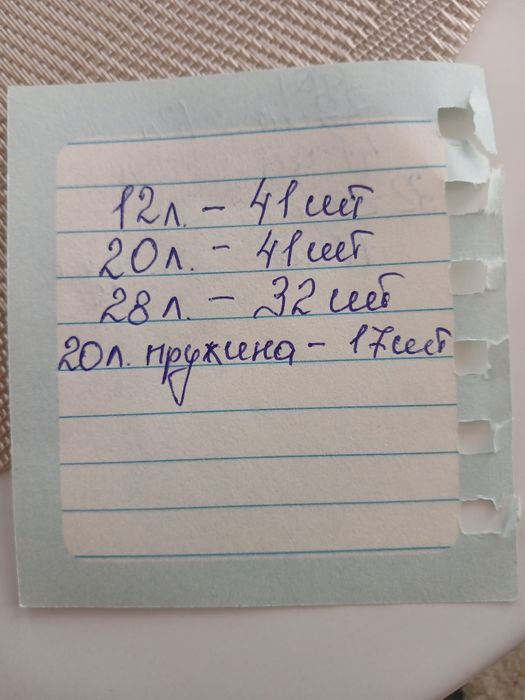 12л. - 41шт
20л. - 41шт
28л. - 32шт
20л. пружина - 17шт